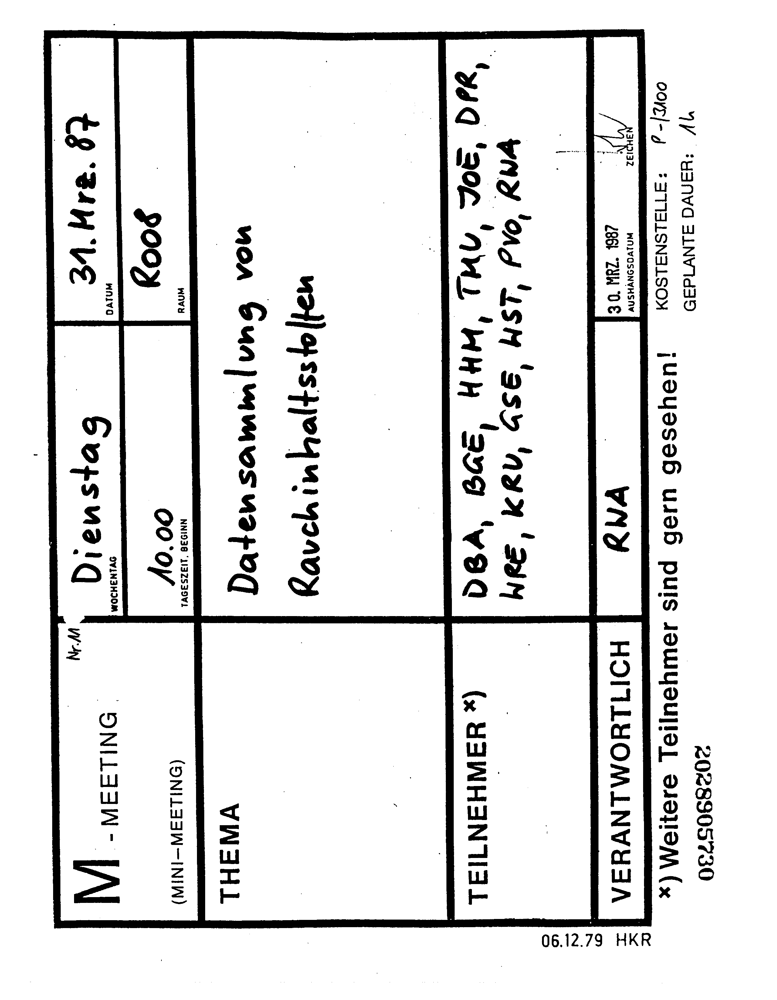 M - MEETING
Nr. 11
(MINI-MEETING)
Dienstag
WOCHENTAG
31. Mrz. 87
DATUM
10.00
TAGESZEIT. BEGINN
R008
RAUM
THEMA
Datensammlung von
Rauchinhaltsstoffen
TEILNEHMER *)
DBA, BGE, HHM, TMU, JOE, DPR,
WRE, KRU, GSE, WST, PVO, RWA
VERANTWORTLICH
RWA
30. MRZ. 1987
AUSHANGSDATUM
ZEICHEN
*) Weitere Teilnehmer sind gern gesehen!
KOSTENSTELLE: P-/3100
GEPLANTE DAUER: 1h
2028905730
06.12.79 HKR